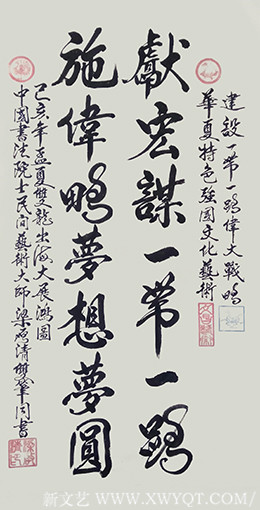 建設一帶一路偉大戰略
華夏特色強國文化藝術
獻宏謀一帶一路
施偉略夢想夢圓
己亥年孟夏雙龍出海大展鴻圖
中國書法院士民间藝術大師梁
清 筆同書
新文艺 WWW.XWYQT.COM/